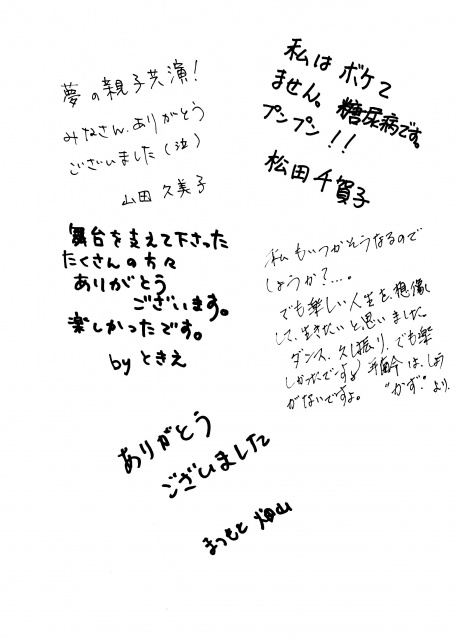 夢の親子共演！
みなさん、ありがとう
ございました（泣）
山田久美子
私はボケて
ません。糖尿病です。
プンプン！！
松田千賀子
舞台を支えて下さった
たくさんの方々
ありがとう
ございます。
楽しかったです。
byときえ
私もいつかそうなるので
しょうか？…。
でも楽しい人生を、想像
して、生きたいと思いました。
ダンス、久し振り、でも楽
しかったでーす♪ 年齢は、しょう
がないですよ。 “かず.” より.
ありがとう
ございました
まつもと